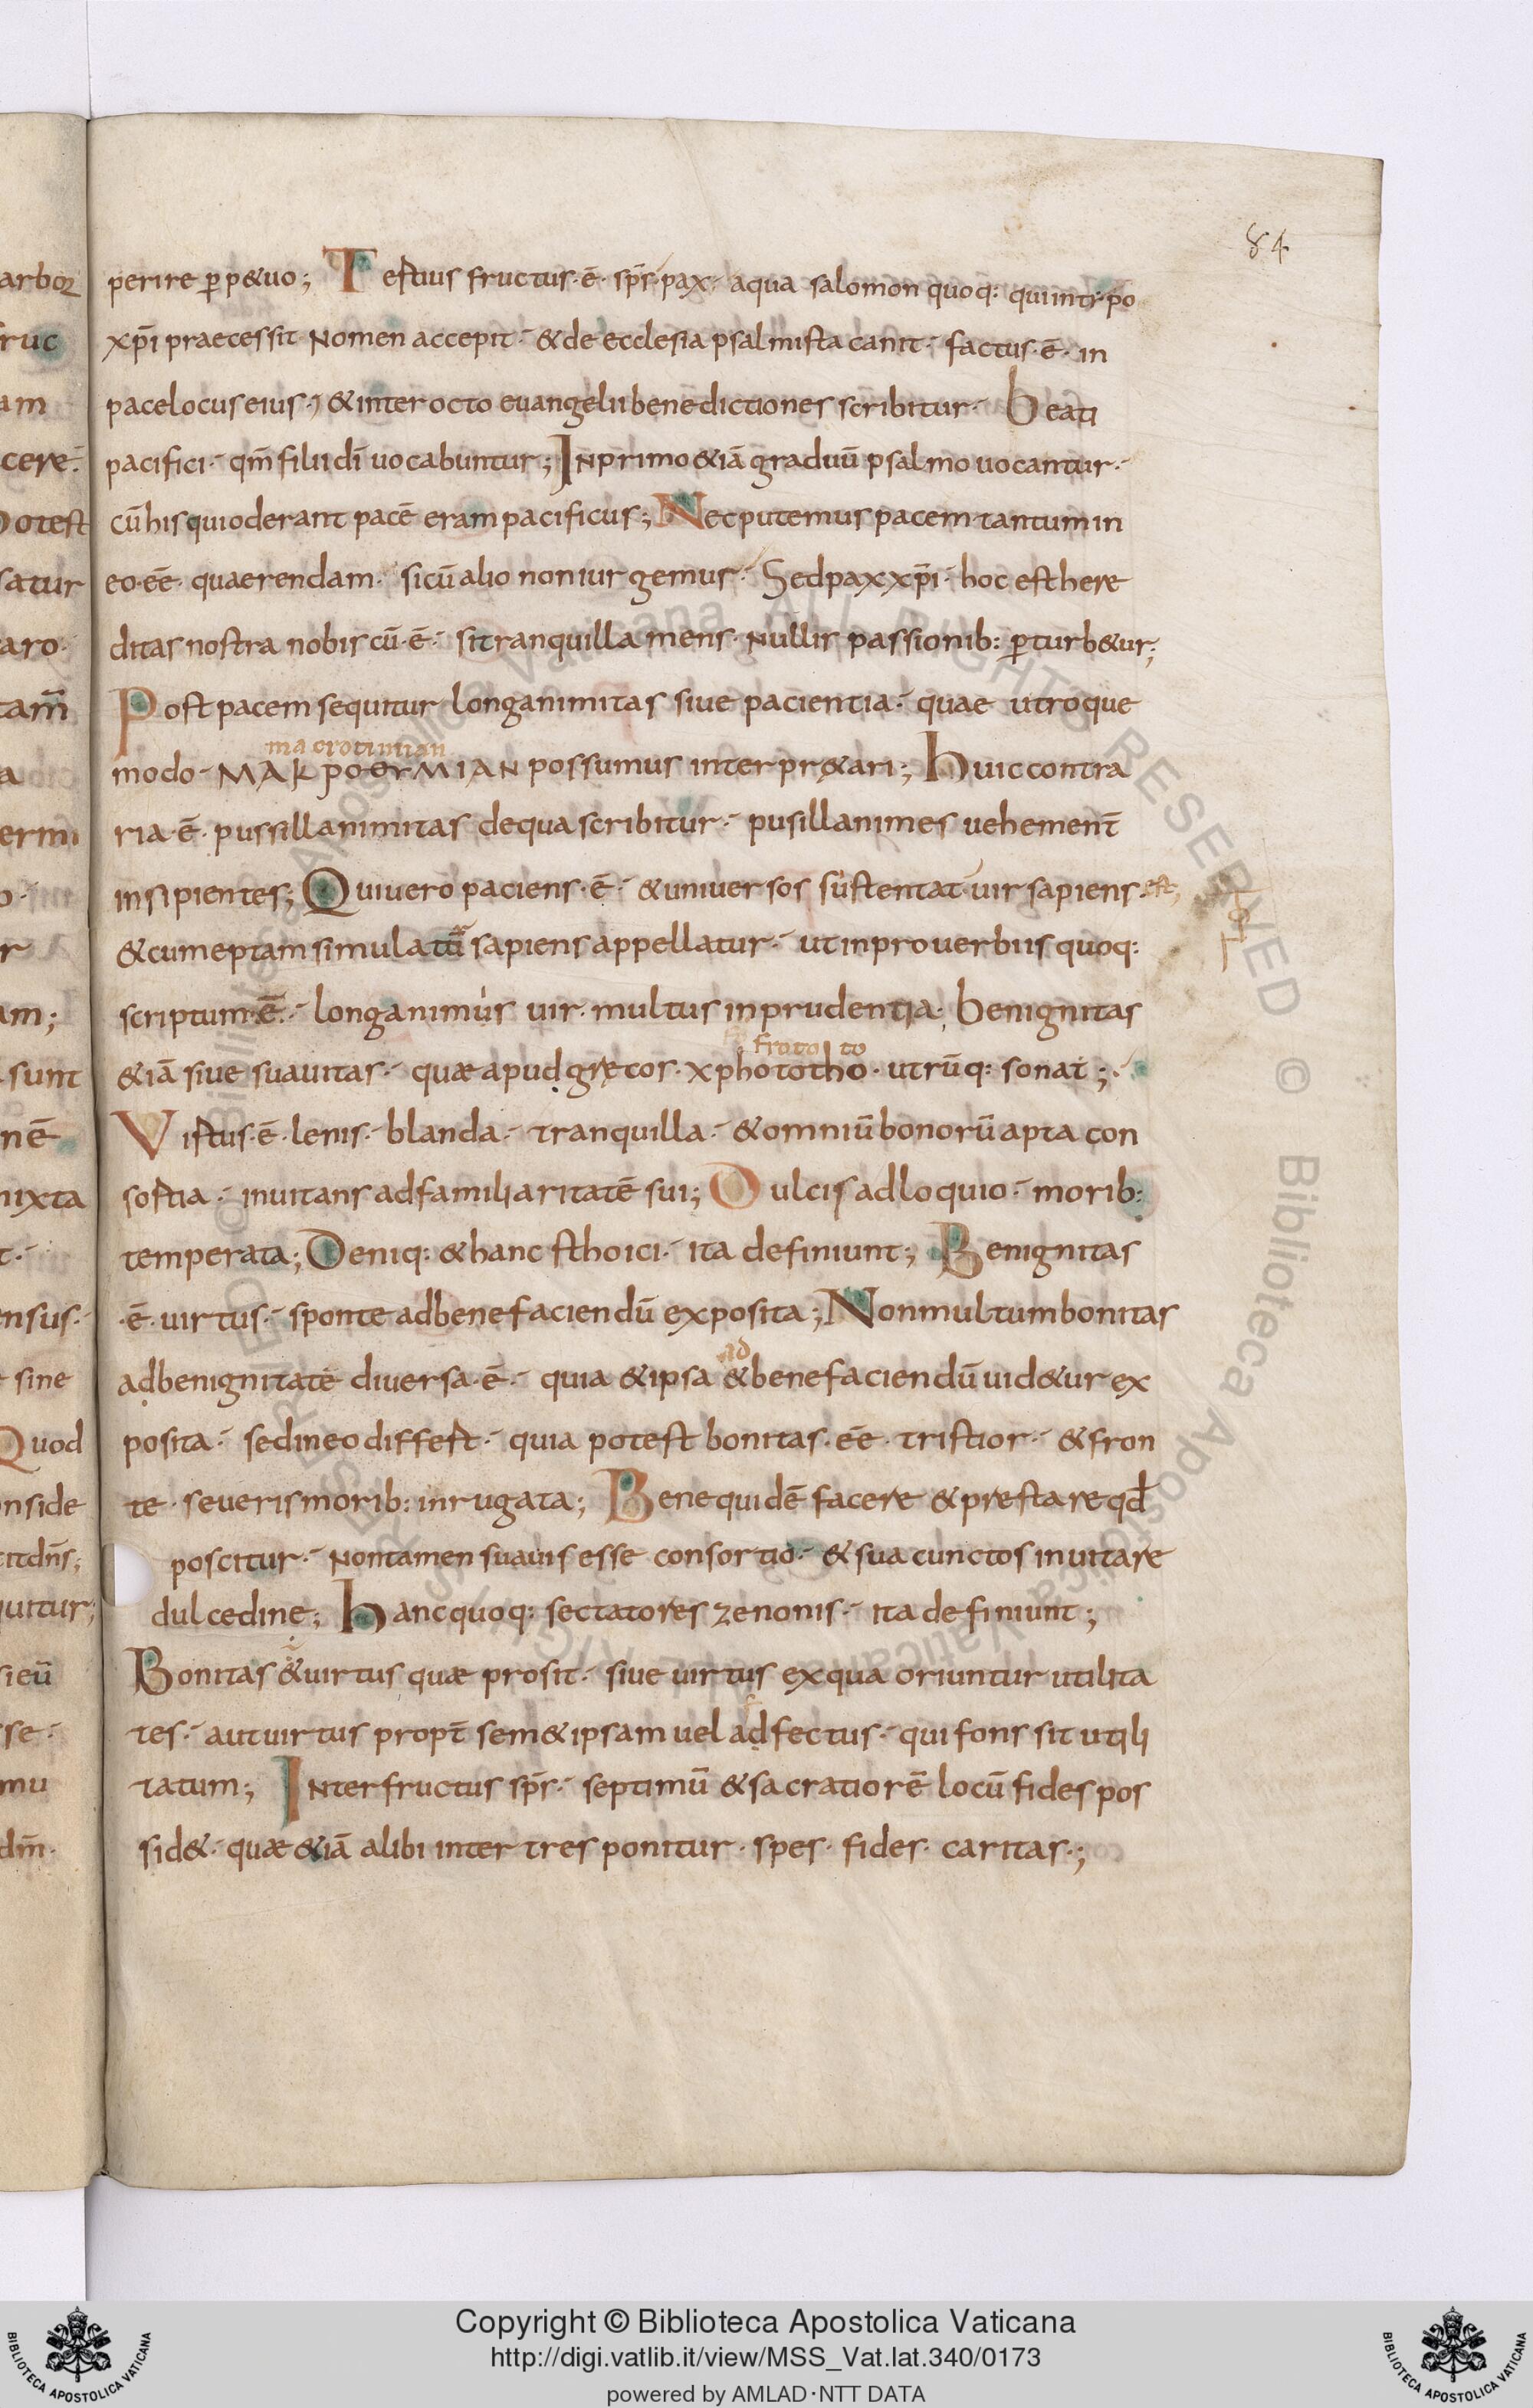 84
perire ꝑp&uo; Testius fructus·ē· sp̄s·pax· aqua salomon quoq: quiintr·po
xp̄i praecessit Nomen accepit· &de ecclesia psalmista canit· factus·ē· in
pacelocuseius·) &interocto euangelii benedictiones scribitur· Beati
pacifici· qm̄ filii dī uocabuntur; INprimo &iā graduū psalmo uocantur·
cū hisquioderant pacē eram pacificus; Necputemus pacem tantum in
eo·eē· quaerendam· sicū alio noniurgemus· Sedpaxxp̄i· hoc esthere
ditas nostra nobiscū·ē· sitranquilla mens· Nullis passionib: ꝑturb&ur;
Post pacem sequitur longanimitas siue pacientia· quae utroque
macrotimian
modo· MAKPOØTMIAN possumus interpr&ari; huic contra
ria·ē· pussillanimitas dequa scribitur· pusillanimes uehement̄
insipientes; Quiuero paciens·ē· &uniuersos sustentat·uir sapiens·est,
&cumeptam simulatū sapiens appellatur· utinprouerbiis quoq:
scriptum·ē· longanimus uir· multus inprudentia· benignitas
frototo
&iā siue suauitas· quæ apud gręcos· xphototho· utrūq: sonat;
Vistus·ē·lenis· blanda· tranquilla· &omniū bonorū apta con
sostia· inuitans adfamiliaritatē sui; Dulcis adloquio· morib:
temperata; Deniq: &hanc sthoici· ita definiunt; Benignitas
·ē·uirtus· sponte adbenefaciendū exposita; Nonmultum bonitas
ad
adbenignitatē diuersa·ē· quia &ipsa &benefaciendū uid&ur ex
posita· sedineo diffest· quia potest bonitas·eē· tristior· &fron
te·seueris morib: inrugata; Bene quidē facere &prestare qd̄
poscitur· Nontamen suauis esse consortio· &sua cunctos inuitare
dulcedine; hanc quoq: sectatores zenonis· ita definiunt;
Bonitas &uirtus quæ prosit· siue uirtus exqua oriuntur utilita
tes· aut uirtus propt̄ sem&ipsam uel adfectus· qui fons sit utili
tatum; INterfructus sp̄s· septimū &sacratiorē locū fides pos
sid&· quæ &iā alibi inter tres ponitur· spes· fides· caritas·;
Copyright © Biblioteca Apostolica Vaticana
http://digi.vatlib.it/view/MSS_Vat.lat.340/0173
powered by AMLAD·NTT DATA